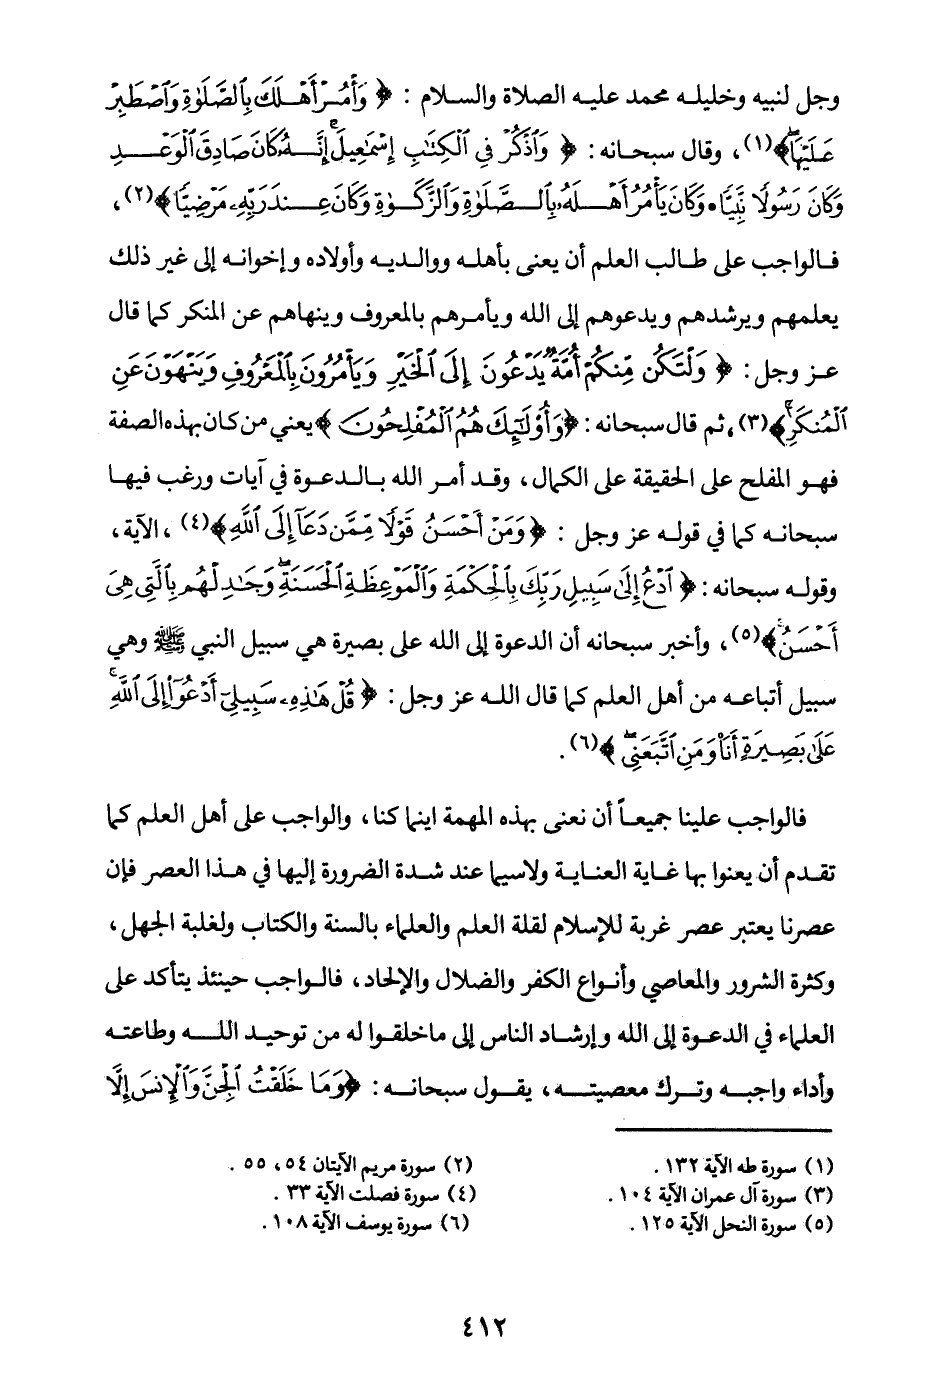 وجل لنبيه وخليله محمد عليه الصلاة والسلام : ﴿ وَأْمُرْ أَهْلَكَ بِالصَّلَوٰةِ وَاصْطَبِرْ
عَلَيْهَا ﴾(١)، وقال سبحانه: ﴿ وَاذْكُرْ فِي الْكِتَابِ إِسْمَاعِيلَ إِنَّهُ كَانَ صَادِقَ الْوَعْدِ
وَكَانَ رَسُولًا نَّبِيًّا • وَكَانَ يَأْمُرُ أَهْلَهُ بِالصَّلَوٰةِ وَالزَّكَوٰةِ وَكَانَ عِندَ رَبِّهِ مَرْضِيًّا ﴾(٢)،
فالواجب على طالب العلم أن يعنى بأهله ووالديه وأولاده وإخوانه إلى غير ذلك
يعلمهم ويرشدهم ويدعوهم إلى الله ويأمرهم بالمعروف وينهاهم عن المنكر كما قال
عز وجل: ﴿ وَلْتَكُن مِّنكُمْ أُمَّةٌ يَدْعُونَ إِلَى الْخَيْرِ وَيَأْمُرُونَ بِالْمَعْرُوفِ وَيَنْهَوْنَ عَنِ
الْمُنكَرِ ﴾(٣)، ثم قال سبحانه: ﴿ وَأُوْلَٰٓئِكَ هُمُ الْمُفْلِحُونَ ﴾ يعني من كان بهذه الصفة
فهو المفلح على الحقيقة على الكمال، وقد أمر الله بالدعوة في آيات ورغب فيها
سبحانه كما في قوله عز وجل : ﴿ وَمَنْ أَحْسَنُ قَوْلًا مِّمَّن دَعَآ إِلَى اللَّهِ ﴾(٤) ، الآية،
وقوله سبحانه: ﴿ ادْعُ إِلَىٰ سَبِيلِ رَبِّكَ بِالْحِكْمَةِ وَالْمَوْعِظَةِ الْحَسَنَةِ وَجَٰدِلْهُم بِالَّتِي هِيَ
أَحْسَنُ ﴾(٥)، وأخبر سبحانه أن الدعوة إلى الله على بصيرة هي سبيل النبي ﷺ وهي
سبيل أتباعه من أهل العلم كما قال الله عز وجل: ﴿ قُلْ هَٰذِهِ سَبِيلِي أَدْعُوٓا إِلَى اللَّهِ
عَلَىٰ بَصِيرَةٍ أَنَا۠ وَمَنِ اتَّبَعَنِي ﴾(٦).
فالواجب علينا جميعاً أن نعنى بهذه المهمة اينما كنا، والواجب على أهل العلم كما
تقدم أن يعنوا بها غاية العناية ولاسيما عند شدة الضرورة إليها في هذا العصر فإن
عصرنا يعتبر عصر غربة للإسلام لقلة العلم والعلماء بالسنة والكتاب ولغلبة الجهل،
وكثرة الشرور والمعاصي وأنواع الكفر والضلال والإلحاد، فالواجب حينئذ يتأكد على
العلماء في الدعوة إلى الله وإرشاد الناس إلى ماخلقوا له من توحيد الله وطاعته
وأداء واجبه وترك معصيته، يقول سبحانه: ﴿ وَمَا خَلَقْتُ الْجِنَّ وَالْإِنسَ إِلَّا
(١) سورة طه الآية ١٣٢ . (٢) سورة مريم الآيتان ٥٤، ٥٥ .
(٣) سورة آل عمران الآية ١٠٤ . (٤) سورة فصلت الآية ٣٣ .
(٥) سورة النحل الآية ١٢٥ . (٦) سورة يوسف الآية ١٠٨ .
٤١٢